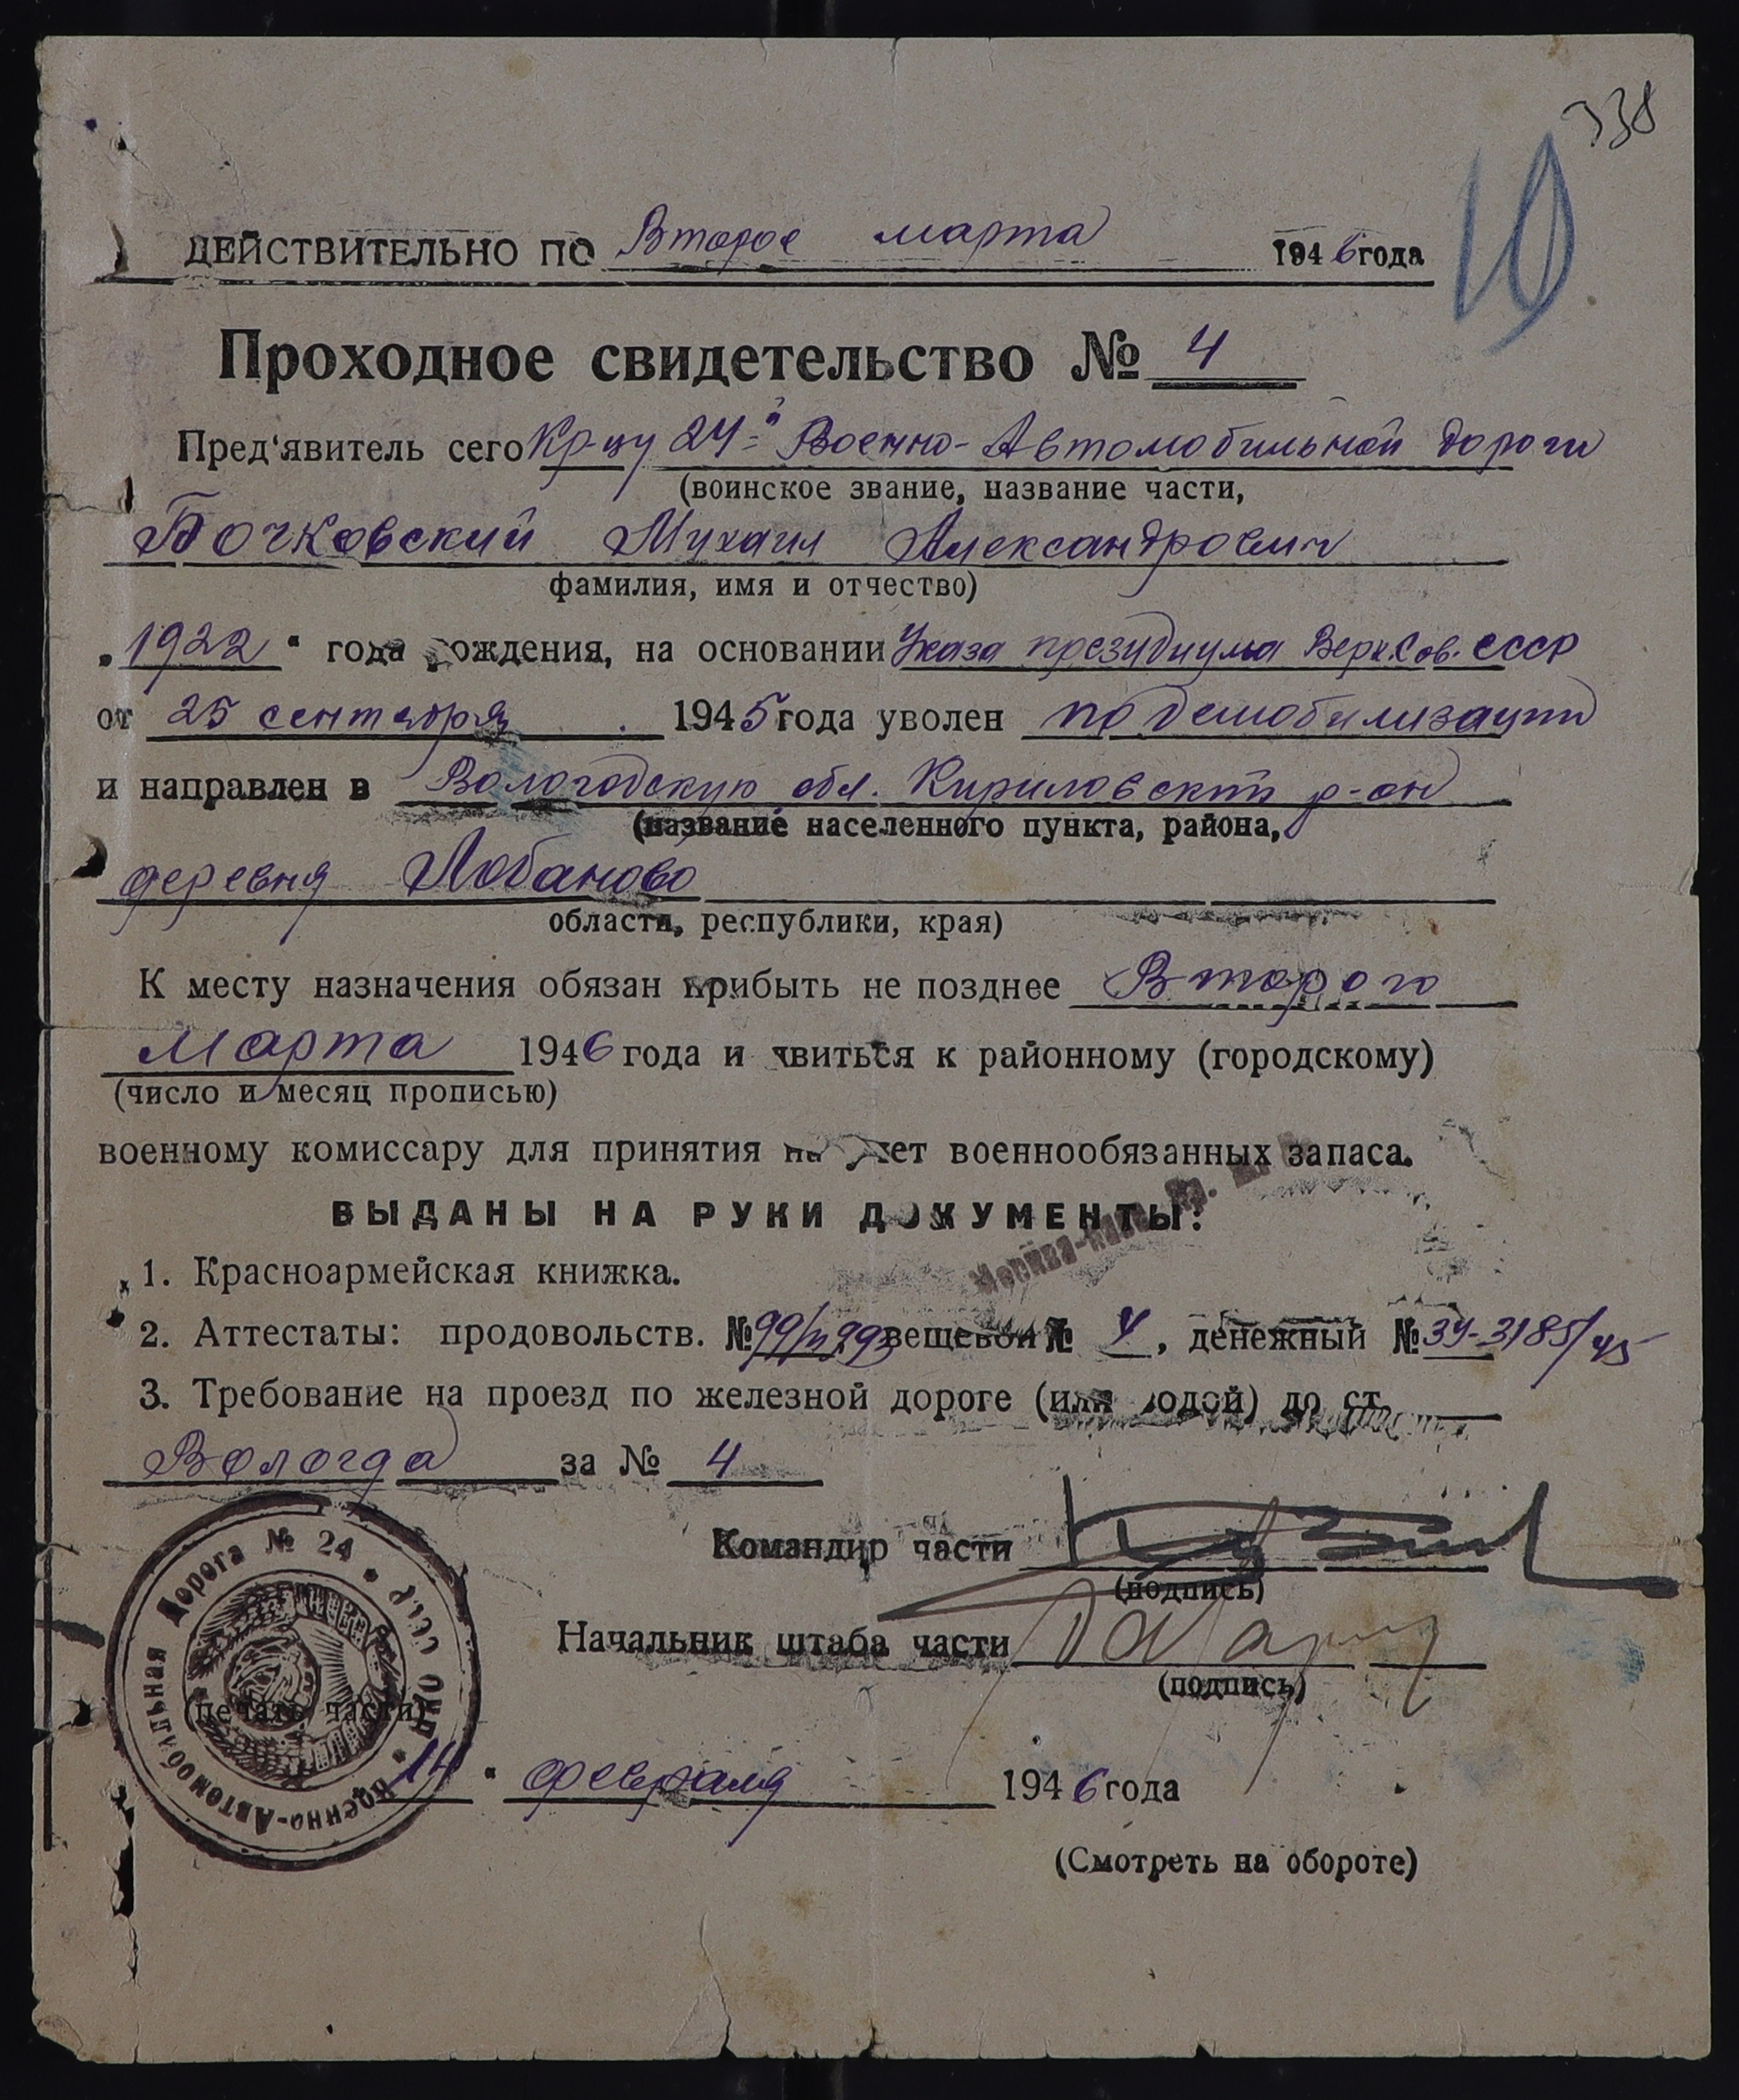 338
10
ДЕЙСТВИТЕЛЬНО ПО Второе марта 1946 года
Проходное свидетельство № 4
Пред'явитель сего Кр-цу 24-й Военно-Автомобильной дороги
(воинское звание, название части,
Бочковский Михаил Александрович
фамилия, имя и отчество)
„1922“ года рождения, на основании Указа президиума Верх.Сов. СССР
от 25 сентября 1945 года уволен по демобилизации
и направлен в Вологодскую обл. Кириловский р-он
(название населенного пункта, района,
деревня Лобаново
области, республики, края)
К месту назначения обязан прибыть не позднее Второго
марта 1946 года и явиться к районному (городскому)
(число и месяц прописью)
военному комиссару для принятия на учет военнообязанных запаса.
ВЫДАНЫ НА РУКИ ДОКУМЕНТЫ:
1. Красноармейская книжка.
2. Аттестаты: продовольств. № вещевой № 4, денежный № 34-3185/45
3. Требование на проезд по железной дороге (или водой) до ст.
Вологда за № 4
Командир части
(подпись)
Начальник штаба части
(подпись)
Военно-Автомобильная Дорога № 24 • НКО СССР •
(печать части)
14 “ февраля 1946 года
(Смотреть на обороте)